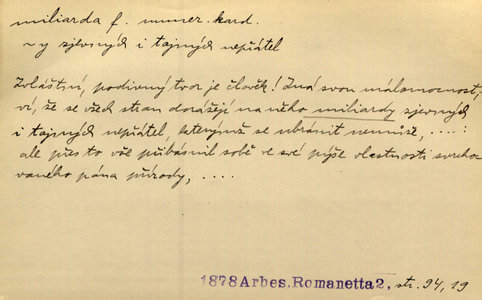 miliarda f. numer. kard.
~y zjevných i tajných nepřátel
Zvláštní, podivný tvor je člověk! Zná svou málomocnost,
ví, že se všech stran dorážejí na něho miliardy zjevných
i tajných nepřátel, kterýmž se ubrániti nemůže, ....:
ale přes to vše přibásnil sobě ve své pýše vlastnosti svrcho
vaného pána přírody, ....
1878 Arbes. Romanetta 2, str. 94, 19